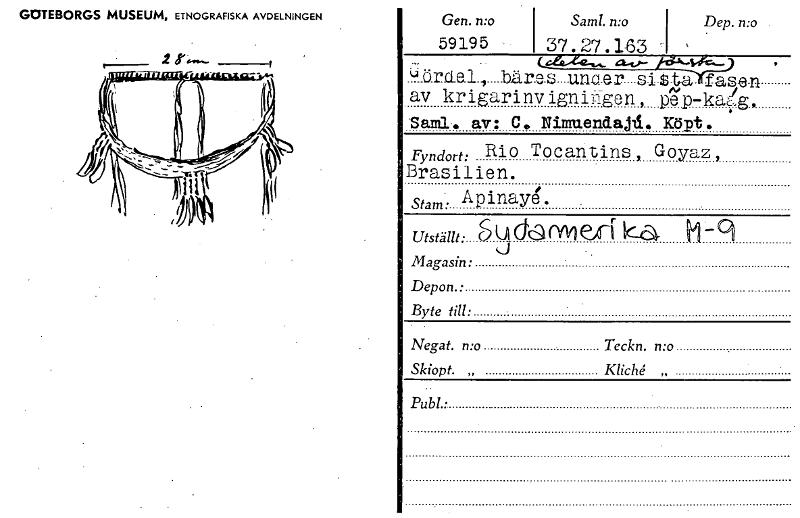 GÖTEBORGS MUSEUM, ETNOGRAFISKA AVDELNINGEN
28 cm
Gen. n:o Saml. n:o Dep. n:o
59195 37.27.163
(delen av första)
Gördel, bäres under sista fasen
av krigarinvigningen, pẽp-kaág.
Saml. av: C. Nimuendajú. Köpt.
Fyndort: Rio Tocantins, Goyaz,
Brasilien.
Stam: Apinayé.
Utställt: Sydamerika M-9
Magasin:
Depon.:
Byte till:
Negat. n:o Teckn. n:o
Skiopt. „ Kliché „
Publ.: